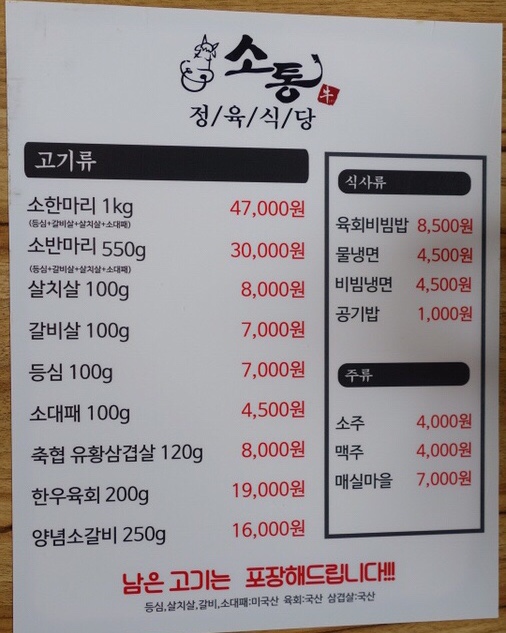 소통
牛
정/육/식/당
고기류
소한마리 1kg 47,000원
(등심+갈비살+살치살+소대패)
소반마리 550g 30,000원
(등심+갈비살+살치살+소대패)
살치살 100g 8,000원
갈비살 100g 7,000원
등심 100g 7,000원
소대패 100g 4,500원
축협 유황삼겹살 120g 8,000원
한우육회 200g 19,000원
양념소갈비 250g 16,000원
식사류
육회비빔밥 8,500원
물냉면 4,500원
비빔냉면 4,500원
공기밥 1,000원
주류
소주 4,000원
맥주 4,000원
매실마을 7,000원
남은 고기는 포장해드립니다!!!
등심,살치살,갈비,소대패:미국산 육회:국산 삼겹살:국산